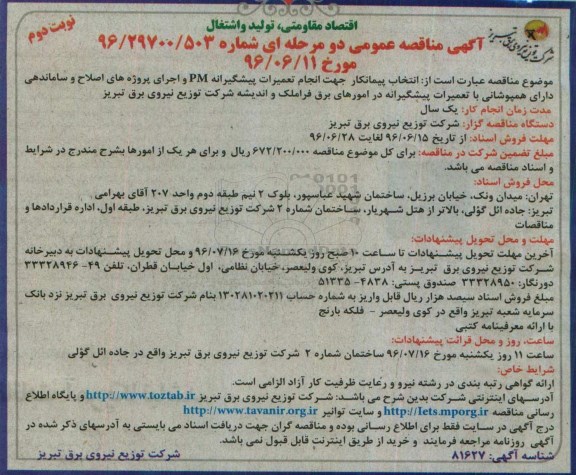 اقتصاد مقاومتی، تولید واشتغال
نوبت دوم
آگهی مناقصه عمومی دو مرحله ای شماره ۹۶/۲۹۷۰۰/۵۰۳
مورخ ۹۶/۰۶/۱۱
شرکت توزیع نیروی برق تبریز
موضوع مناقصه عبارت است از: انتخاب پیمانکار جهت انجام تعمیرات پیشگیرانه PM و اجرای پروژه های اصلاح و ساماندهی
دارای همپوشانی با تعمیرات پیشگیرانه در امورهای برق فراملک و اندیشه شرکت توزیع نیروی برق تبریز
مدت زمان انجام کار: یک سال
دستگاه مناقصه گزار: شرکت توزیع نیروی برق تبریز
مهلت فروش اسناد: از تاریخ ۹۶/۰۶/۱۵ لغایت ۹۶/۰۶/۲۸
مبلغ تضمین شرکت در مناقصه: برای کل موضوع مناقصه ۶۷۲/۲۰۰/۰۰۰ ریال و برای هر یک از امورها بشرح مندرج در شرایط
و اسناد مناقصه می باشد.
محل فروش اسناد:
تهران: میدان ونک، خیابان برزیل، ساختمان شهید عباسپور، بلوک ۲ نیم طبقه دوم واحد ۲۰۷ آقای بهرامی
تبریز: جاده ائل گؤلی، بالاتر از هتل شهریار، ساختمان شماره ۲ شرکت توزیع نیروی برق تبریز، طبقه اول، اداره قراردادها و
مناقصات
مهلت و محل تحویل پیشنهادات:
آخرین مهلت تحویل پیشنهادات تا ساعت ۱۰ صبح روز یکشنبه مورخ ۹۶/۰۷/۱۶ و محل تحویل پیشنهادات به دبیرخانه
شرکت توزیع نیروی برق تبریز به آدرس تبریز، کوی ولیعصر، خیابان نظامی، اول خیابان قطران، تلفن ۴۹-۳۳۳۲۸۹۴۶
دورنگار: ۳۳۳۲۸۹۵۰ صندوق پستی: ۴۸۳۸-۵۱۳۳۵
مبلغ فروش اسناد سیصد هزار ریال قابل واریز به شماره حساب ۱۳۰۲۸۱۰۲۰۲۱۱ بنام شرکت توزیع نیروی برق تبریز نزد بانک
سرمایه شعبه تبریز واقع در کوی ولیعصر - فلکه بارنج
با ارائه معرفینامه کتبی
ساعت، روز و محل قرائت پیشنهادات:
ساعت ۱۱ روز یکشنبه مورخ ۹۶/۰۷/۱۶ ساختمان شماره ۲ شرکت توزیع نیروی برق تبریز واقع در جاده ائل گؤلی
شرایط خاص:
ارائه گواهی رتبه بندی در رشته نیرو و رعایت ظرفیت کار آزاد الزامی است.
آدرسهای اینترنتی شرکت بدین شرح می باشد: شرکت توزیع نیروی برق تبریز http://www.toztab.ir و پایگاه اطلاع
رسانی مناقصه http://iets.mporg.ir و سایت توانیر http://www.tavanir.org.ir
درج آگهی در سایت فقط برای اطلاع رسانی بوده و مناقصه گران جهت دریافت اسناد می بایستی به آدرسهای ذکر شده در
آگهی روزنامه مراجعه فرمایند و خرید از طریق اینترنت قابل قبول نمی باشد.
شناسه آگهی: ۸۱۶۲۷
شرکت توزیع نیروی برق تبریز